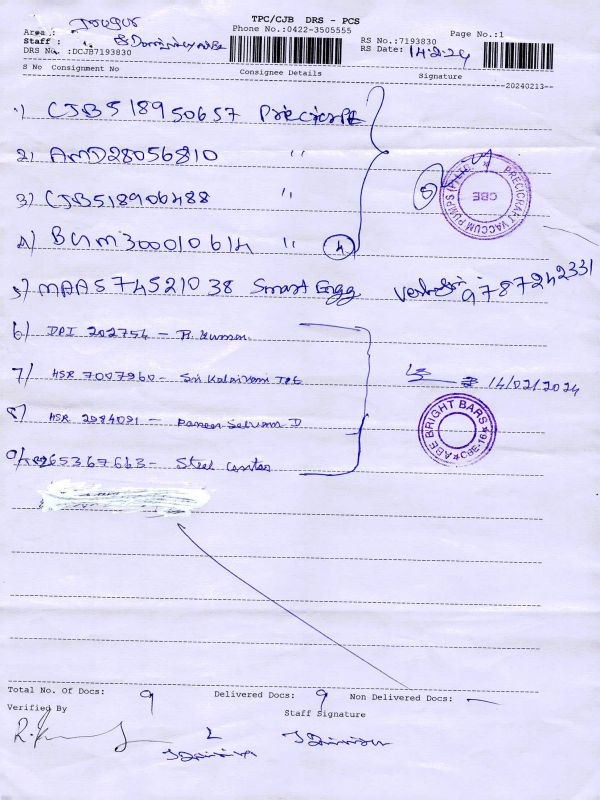 TPC/CJB DRS - PCS
Area :
Phone No.:0422-3505555 Page No.:1
Staff :
RS No.:7193830
DRS No. :DCJB7193830 RS Date: 14.2.24
S No Consignment No Consignee Details Signature
--20240213--
1) CJB518950657
2) AMD28056810 "
3) CJB518906488 "
4) 300010614 " 4
PRECICRAFT VACCUM PUMPS (P) LTD
CBE
5) MAA574521038 Smart Engg 9787242331
6) DPI 202754 - R. Kumar
7) HSR 7007960 - Sri
14/02/2024
8) HSR 2984091 - D
ABE BRIGHT BARS
CBE-16
9) 265367663 - Steel
Total No. Of Docs: 9 Delivered Docs: 9 Non Delivered Docs: -
Verified By Staff Signature